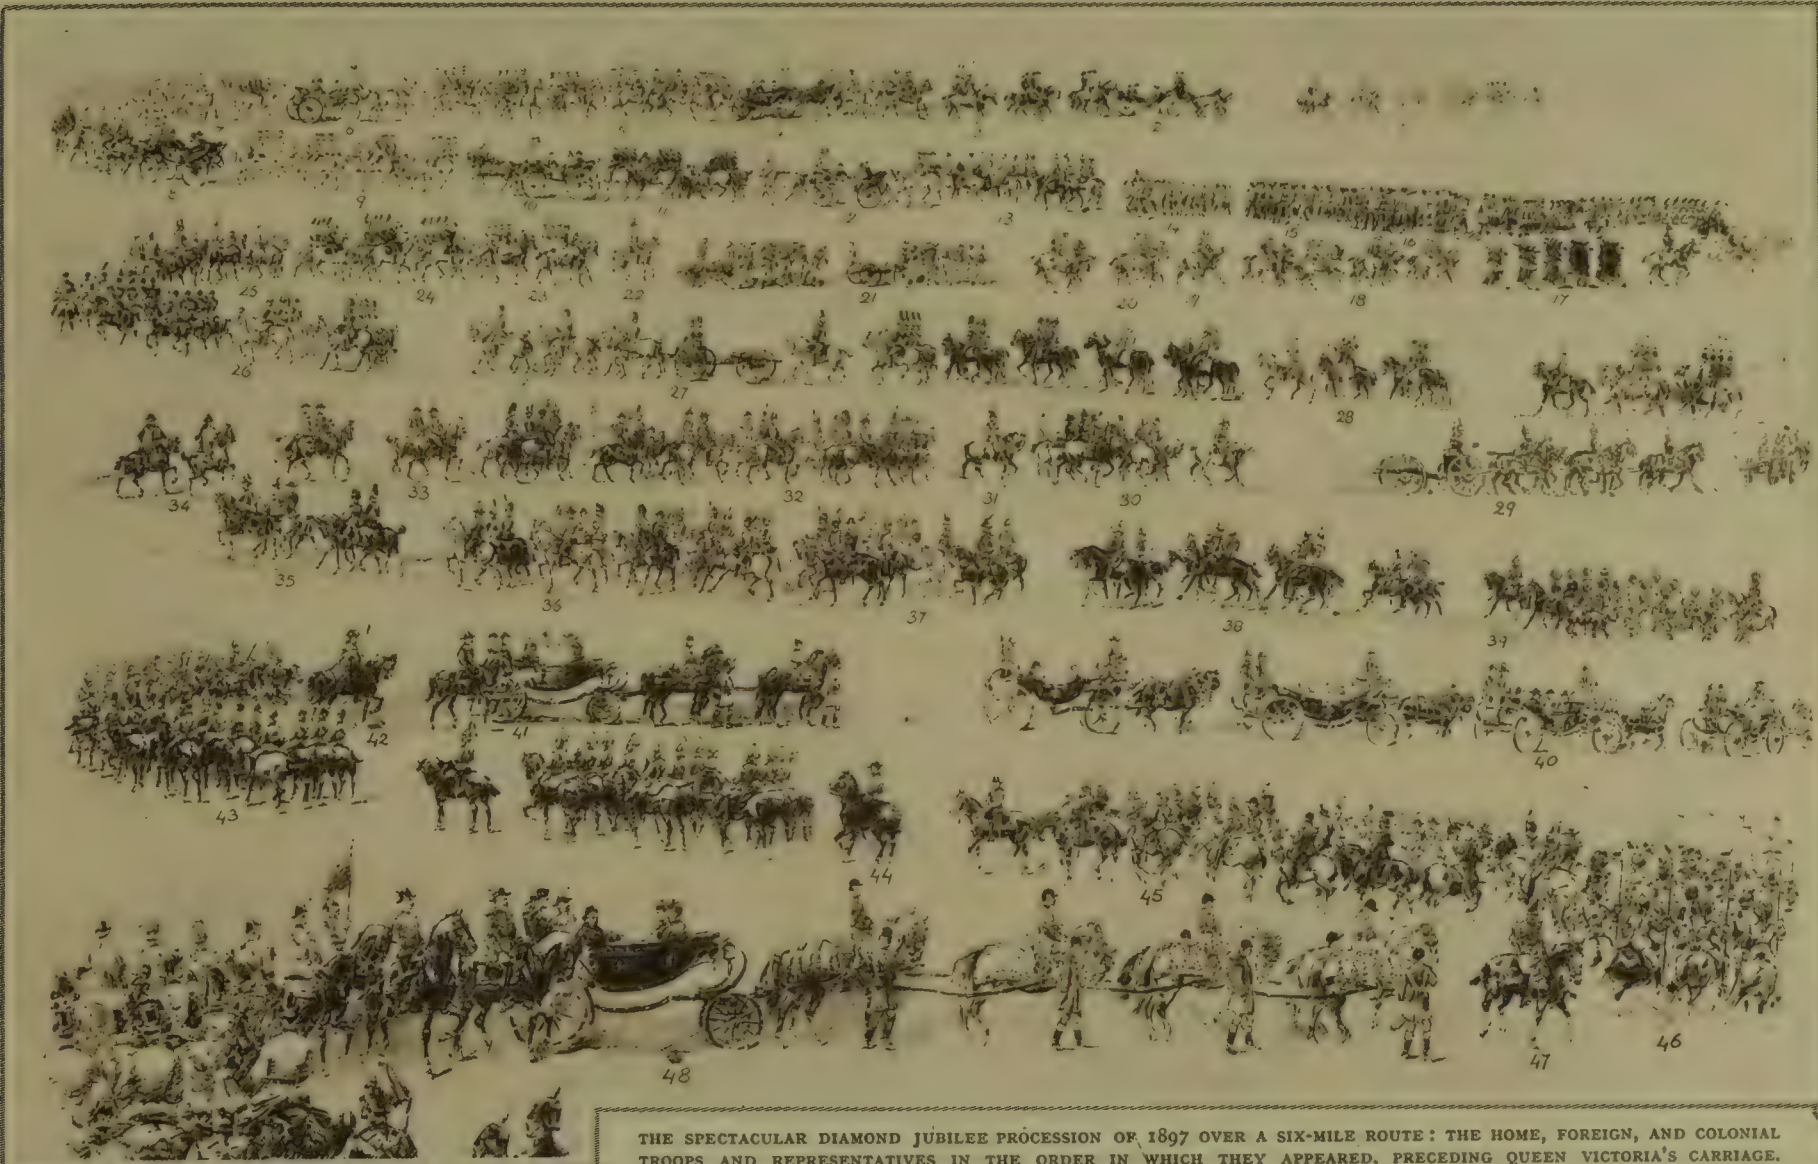 2
8 9 10 11 13 14 15 16
25 24 23 22 21 20 18 17
26 27 28
34 33 32 31 30 29
35 36 37 38 39
42 41 40
43 44 45
48 47 46
THE SPECTACULAR DIAMOND JUBILEE PROCESSION OF 1897 OVER A SIX-MILE ROUTE: THE HOME, FOREIGN, AND COLONIAL
TROOPS AND REPRESENTATIVES IN THE ORDER IN WHICH THEY APPEARED, PRECEDING QUEEN VICTORIA'S CARRIAGE.